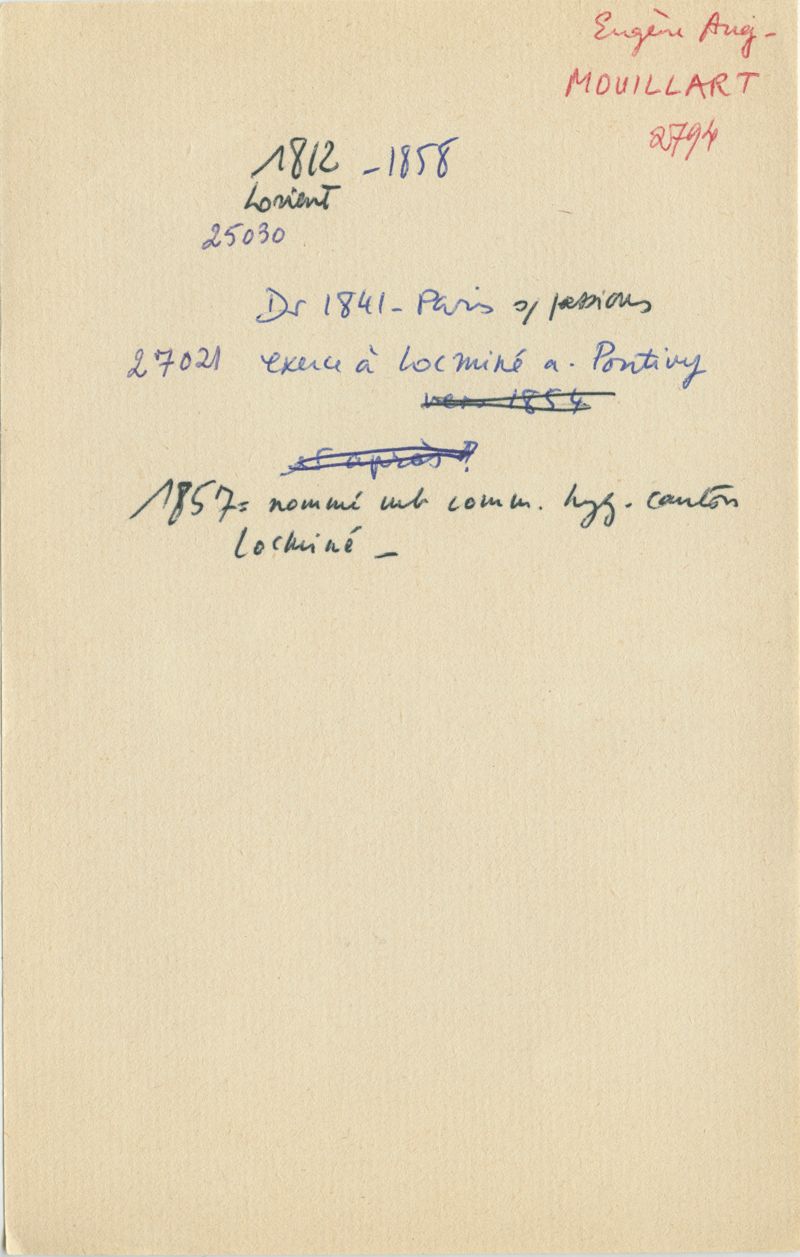 Eugène Aug-
MOUILLART
2794
1812 - 1858
Lorient
25030
Dr 1841 - Paris s/ passions
27021 exerce à Locminé a. Pontivy
vers 1854
et après ?
1857 = nommé mb comm. hyg. canton
Locminé -